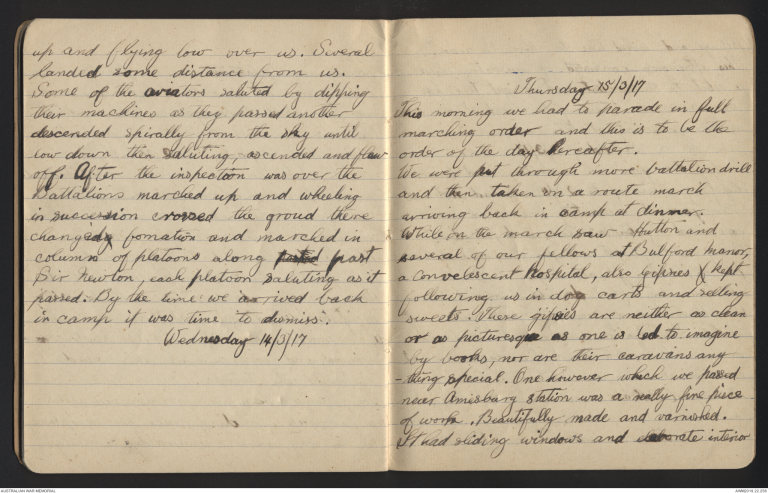 up and flying low over us. Several
landed some distance from us.
Some of the aviators saluted by dipping
their machines as they passed another
descended spirally from the sky until
low down then saluting, ascended and flew
off. After the inspection was over the
Battalions marched up and wheeling
in succession crossed the groud there
changing fomation and marched in
column of platoons along past
Sir Newton, each platoon saluting as it
passed. By the time we arrived back
in camp it was time to dismiss.
Wednesday 14/3/17
Thursday 15/3/17
This morning we had to parade in full
marching order and this is to be the
order of the day hereafter.
We were put through more battalion drill
and then taken on a route march
arriving back in camp at dinner.
While on the march saw Hutton and
several of our fellows at Bulford Manor,
a Convelescent Hospital, also gipsies kept
following us in dog carts and selling
sweets. These gipsies are neither as clean
or as picturesque as one is led to imagine
by books, nor are their caravans any
-thing special. One however which we passed
near Amesbury station was a really fine piece
of work. Beautifully made and varnished.
It had sliding windows and elaborate interior
AUSTRALIAN WAR MEMORIAL